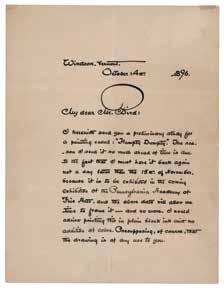 Windsor, Vermont.
October 14th 1896.
My dear Mr. Bird:
I herewith send you a preliminary study for
a printing card: "Humpty Dumpty". The rea-
son I send it so much ahead of time is due
to the fact that I must have it back again
not a day later than the 18th of November,
because it is to be exhibited in the coming
exhibition at the Pennsylvania Academy of
Fine Arts, and the above date will allow me
time to frame it — and no more. I would
advise printing this in plain black ink with no
addition of color. Presupposing, of course, that
the drawing is of any use to you.